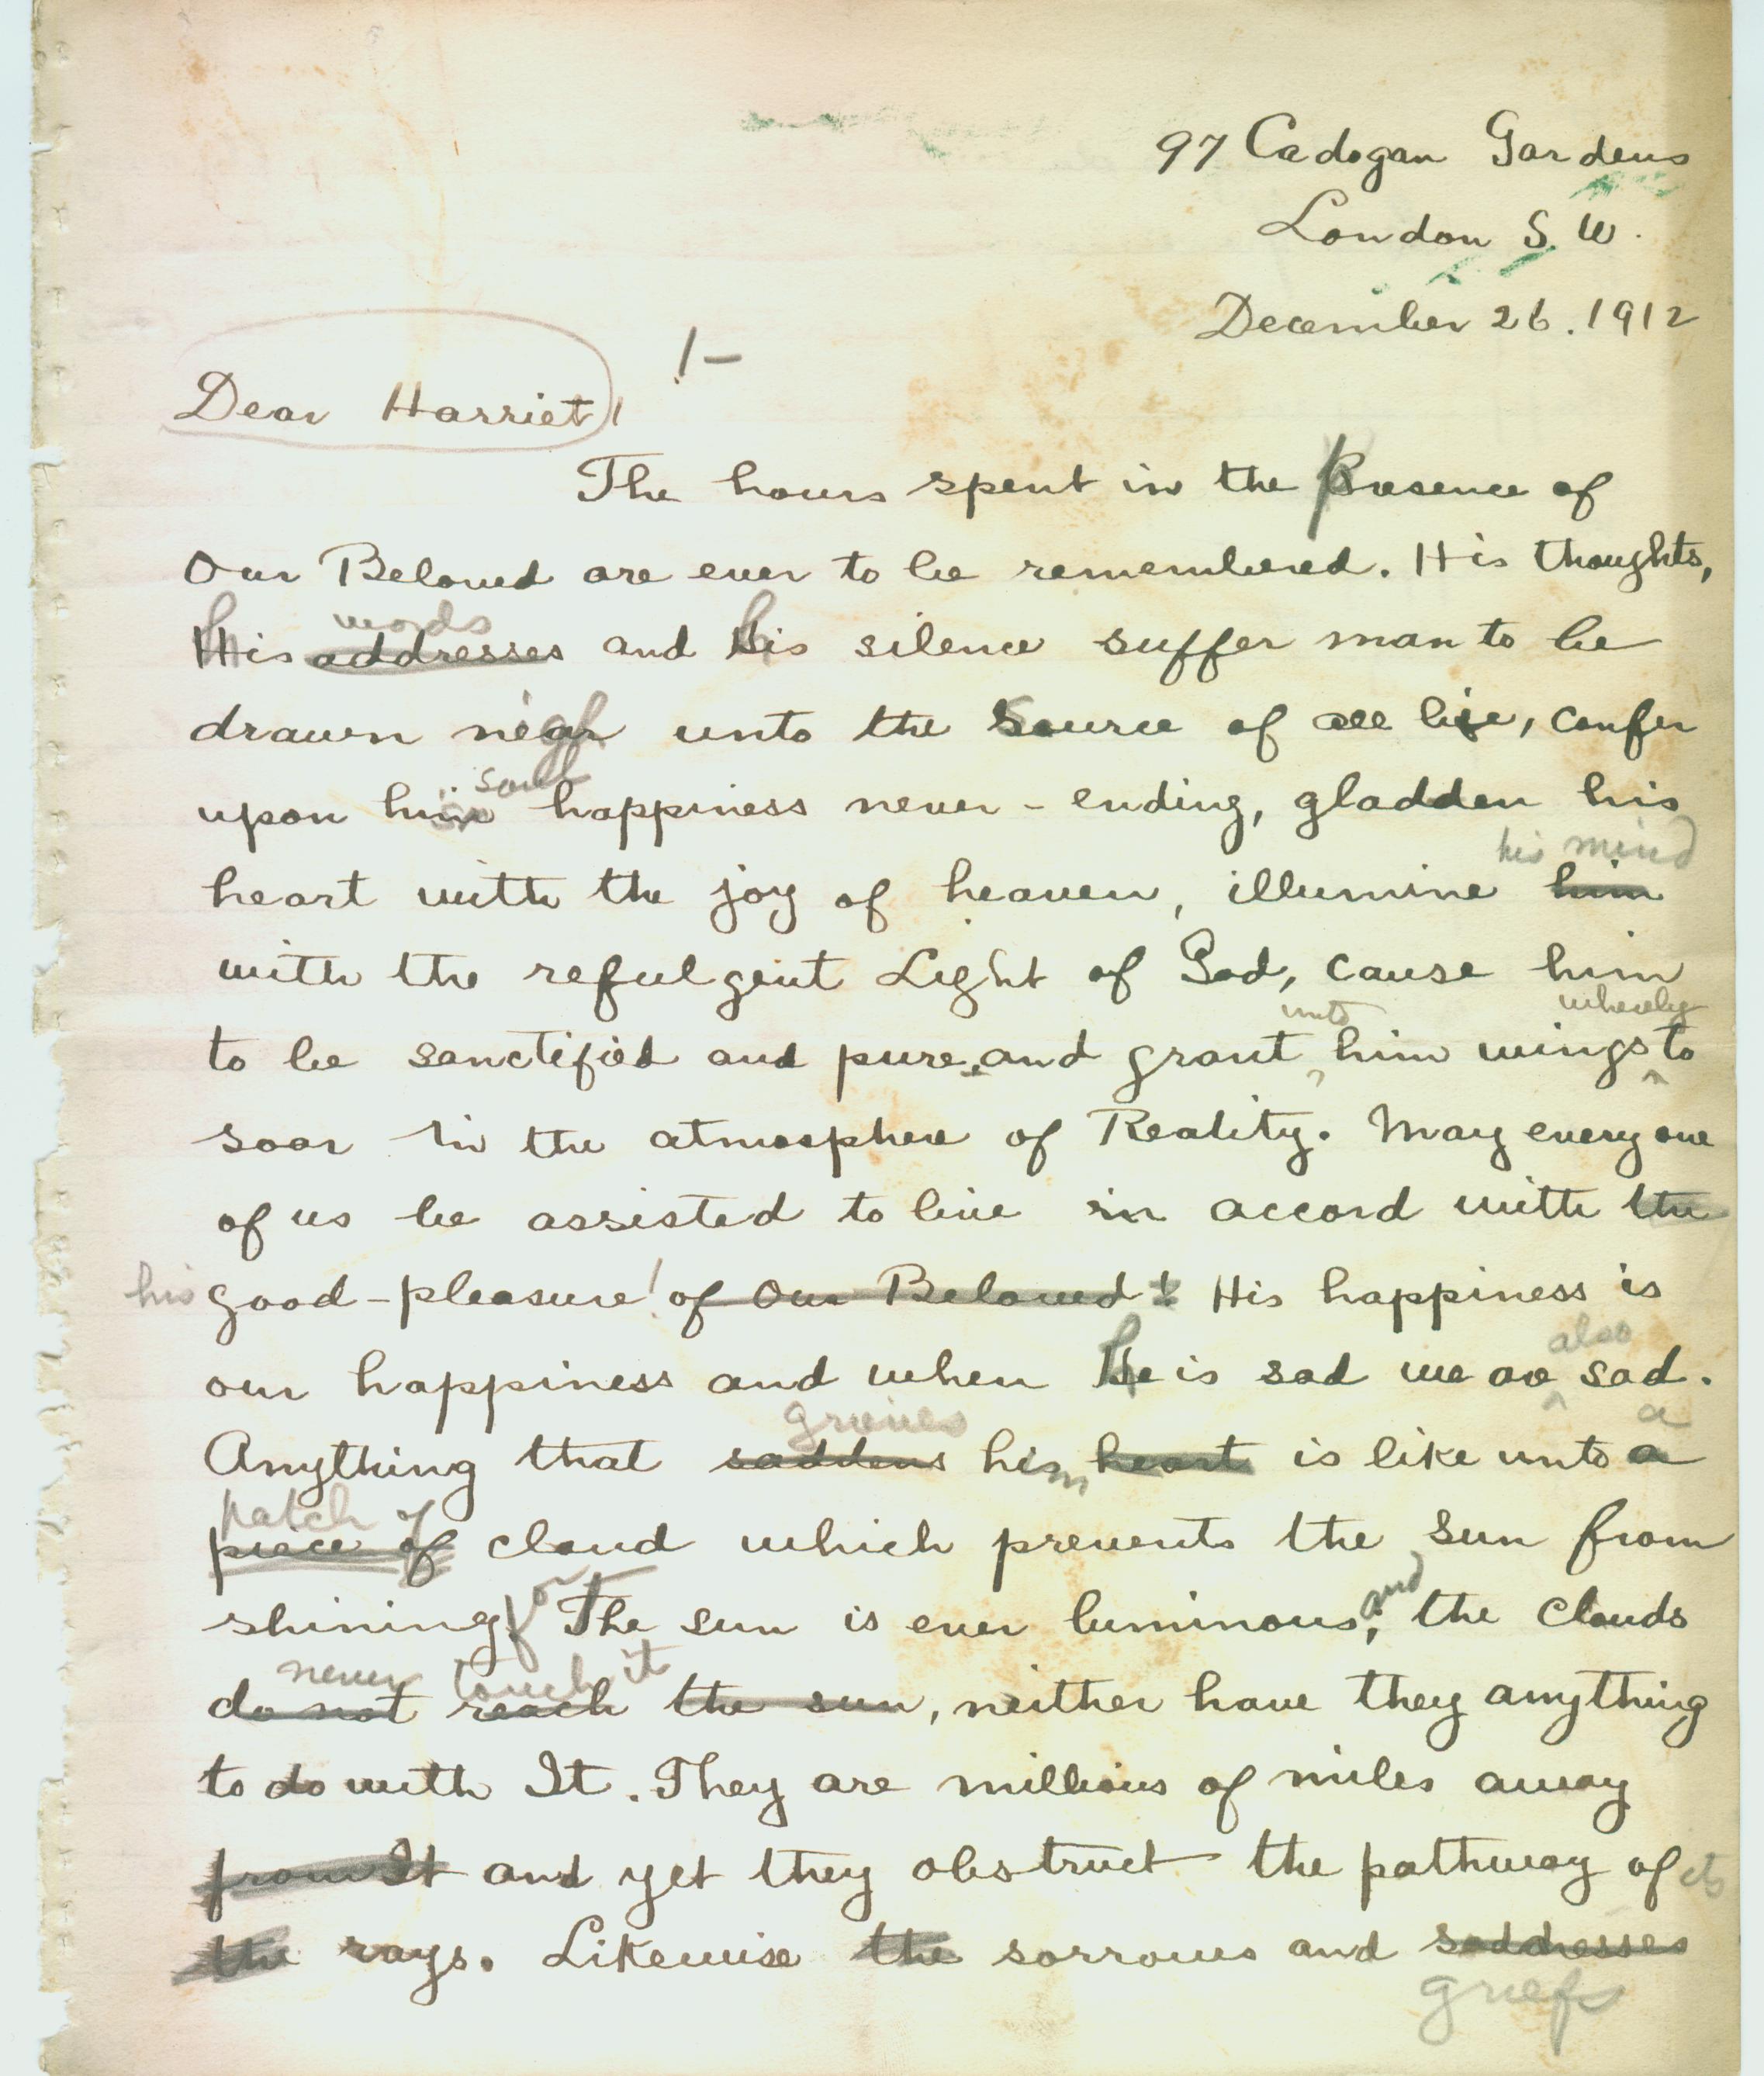 97 Cadogan Gardens
London S. W.
December 26. 1912
!-
Dear Harriet!
The hours spent in the Presence of
Our Beloved are ever to be remembered. His thoughts,
words
His addresses and his silence suffer man to be
drawn nigh unto the Source of all life, confer
soul
upon his happiness never-ending, gladden his
his mind
heart with the joy of heaven, illumine him
with the refulgent Light of God, cause him
unto whereby
to be sanctified and pure, and grant him wings to
soar in the atmosphere of Reality. May every one
of us be assisted to live in accord with the
his good-pleasure! of Our Beloved! His happiness is
also
our happiness and when he is sad we are sad.
grieves a
Anything that saddens him heart is like unto a
patch of
piece of cloud which prevents the sun from
for and
shining, The sun is ever luminous; the clouds
never touch it
do not reach the sun, neither have they anything
to do with It. They are millions of miles away
from It and yet they obstruct the pathway of its
the rays. Likewise the sorrows and saddnesses
griefs